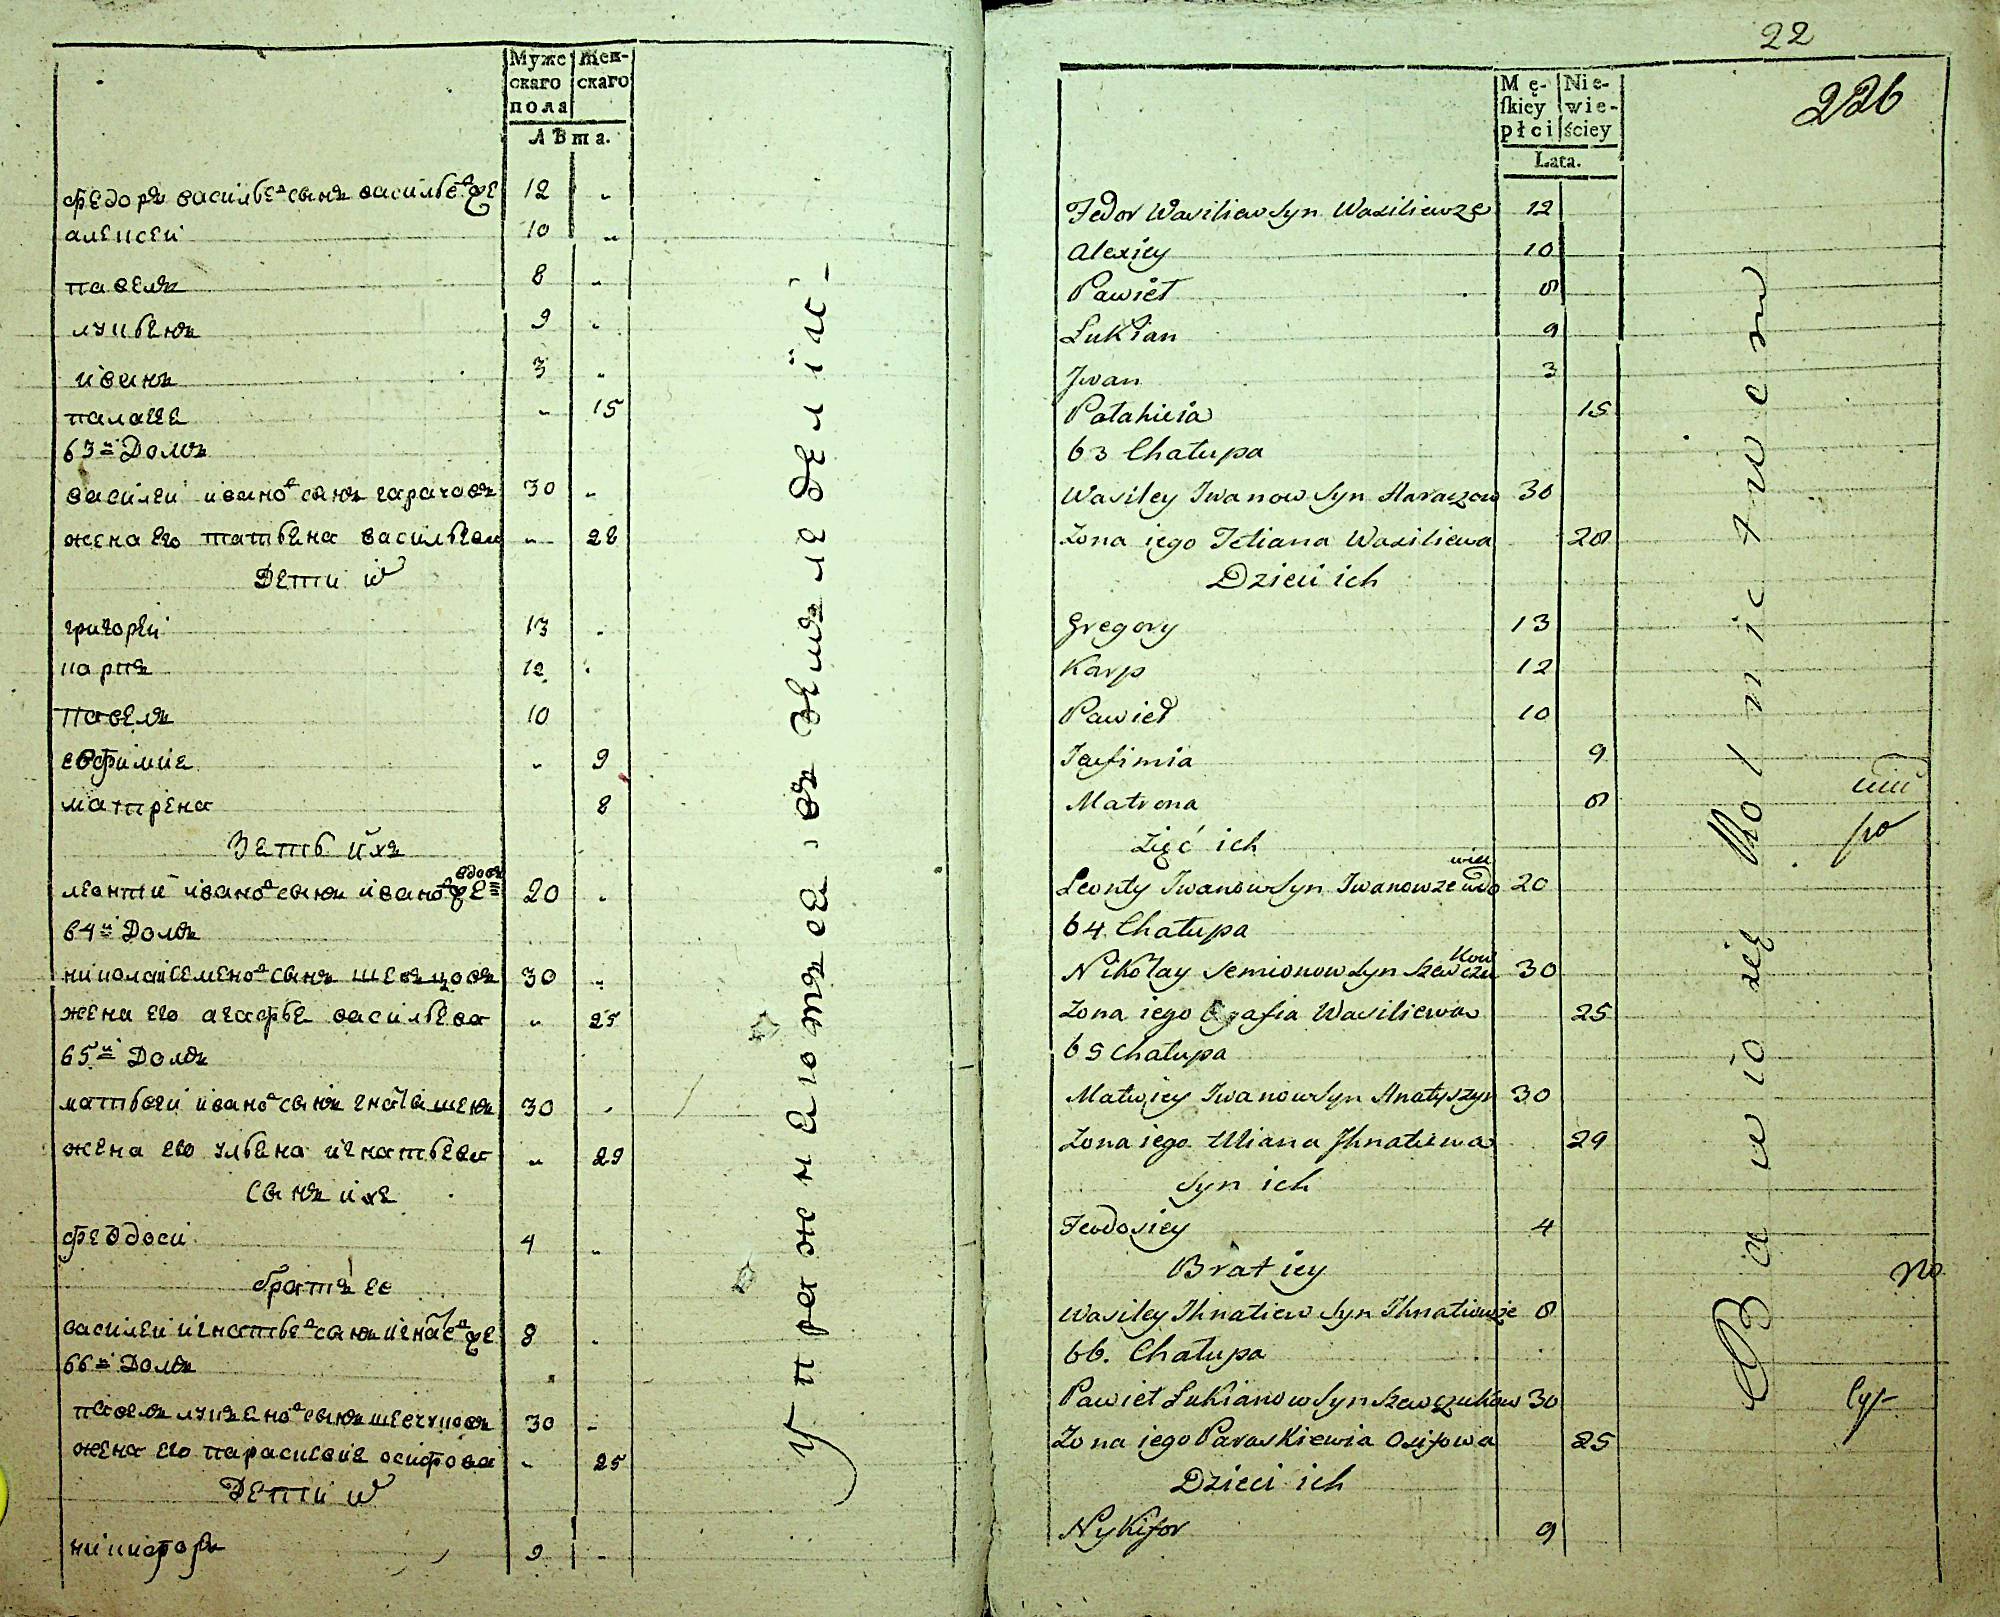 Муже
скаго
пола
Жен-
скаго
Лѣта.
федоръ василье сынъ василь
12
алексей 10
павелъ 8
лукьенъ 9
иванъ 3
палаге 15
63й Домъ
василей ивано сынъ гарачовъ 30
жена его татьена васильева 28
Дети и
григорей 13
карпъ 12
павелъ 10
евфимие 9
матрена 8
Зеть ихъ
леонтий ивано сынъ ивано
вдовъ
20
64й Домъ
николай семено сынъ шевцовъ 30
жена его агафье васильева 25
65й Домъ
матьвей ивано сынъ 30
жена его ульена игнатьева 29
Сынъ ихъ
феодоси 4
братъ ее
василей игнатье сынъ 8
66й Домъ
павелъ лукьено сынъ шевчуковъ 30
жена его парасковие осифова 25
Дети и
никифоръ 9
упражнеютъсе въ земледелие
22
226
Mę-
skiey
płci
Nie-
wie-
ściey
Lata.
Fedor Wasiliew Syn Wasiliewze 12
Alexiey 10
Pawieł 8
Łukian 9
Jwan 3
Pałahieia 15
63 Chałupa
Wasiley Iwanow Syn Haraczow 30
Żona iego Tetiana Wasiliewa 28
Dzieci ich
Gregory 13
Karp 12
Pawieł 10
Jeufimia 9
Matrona 8
Zięć ich
Leonty Iwanow Syn Iwanowze wdo
wiec
20
64 Chałupa
Nikołay Semionow Syn Szewczu
kow
30
Żona iego Agafia Wasiliewa 25
65 Chałupa
Matwiey Iwanow Syn Hnatyszyn 30
Żona iego Uliana Jhnatiewa 29
Syn ich
Feodosiey 4
Brat iey
Wasiley Ihnatiew Syn Ihnatiewze 8
66. Chałupa
Pawieł Łukianow Syn Szewczukow 30
Żona iego Paraskiewia Osifowa 25
Dzieci ich
Nykifor 9
Bawio się Rolnictwem